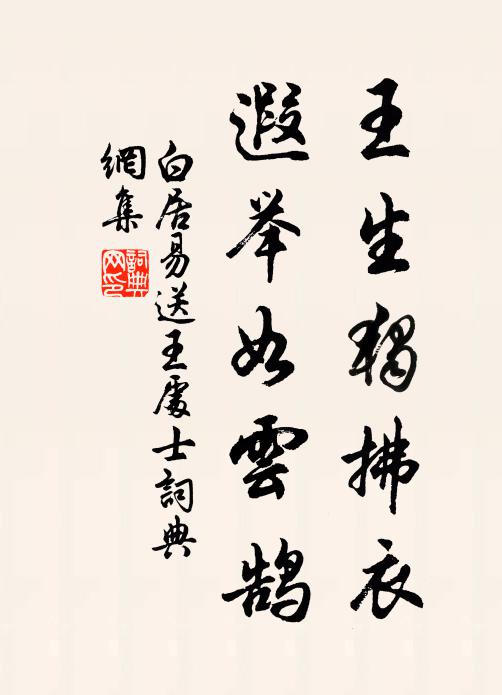 王生獨拂衣
遐举如雲鹄
白居易送王處士詞典
網集
詞典
网印